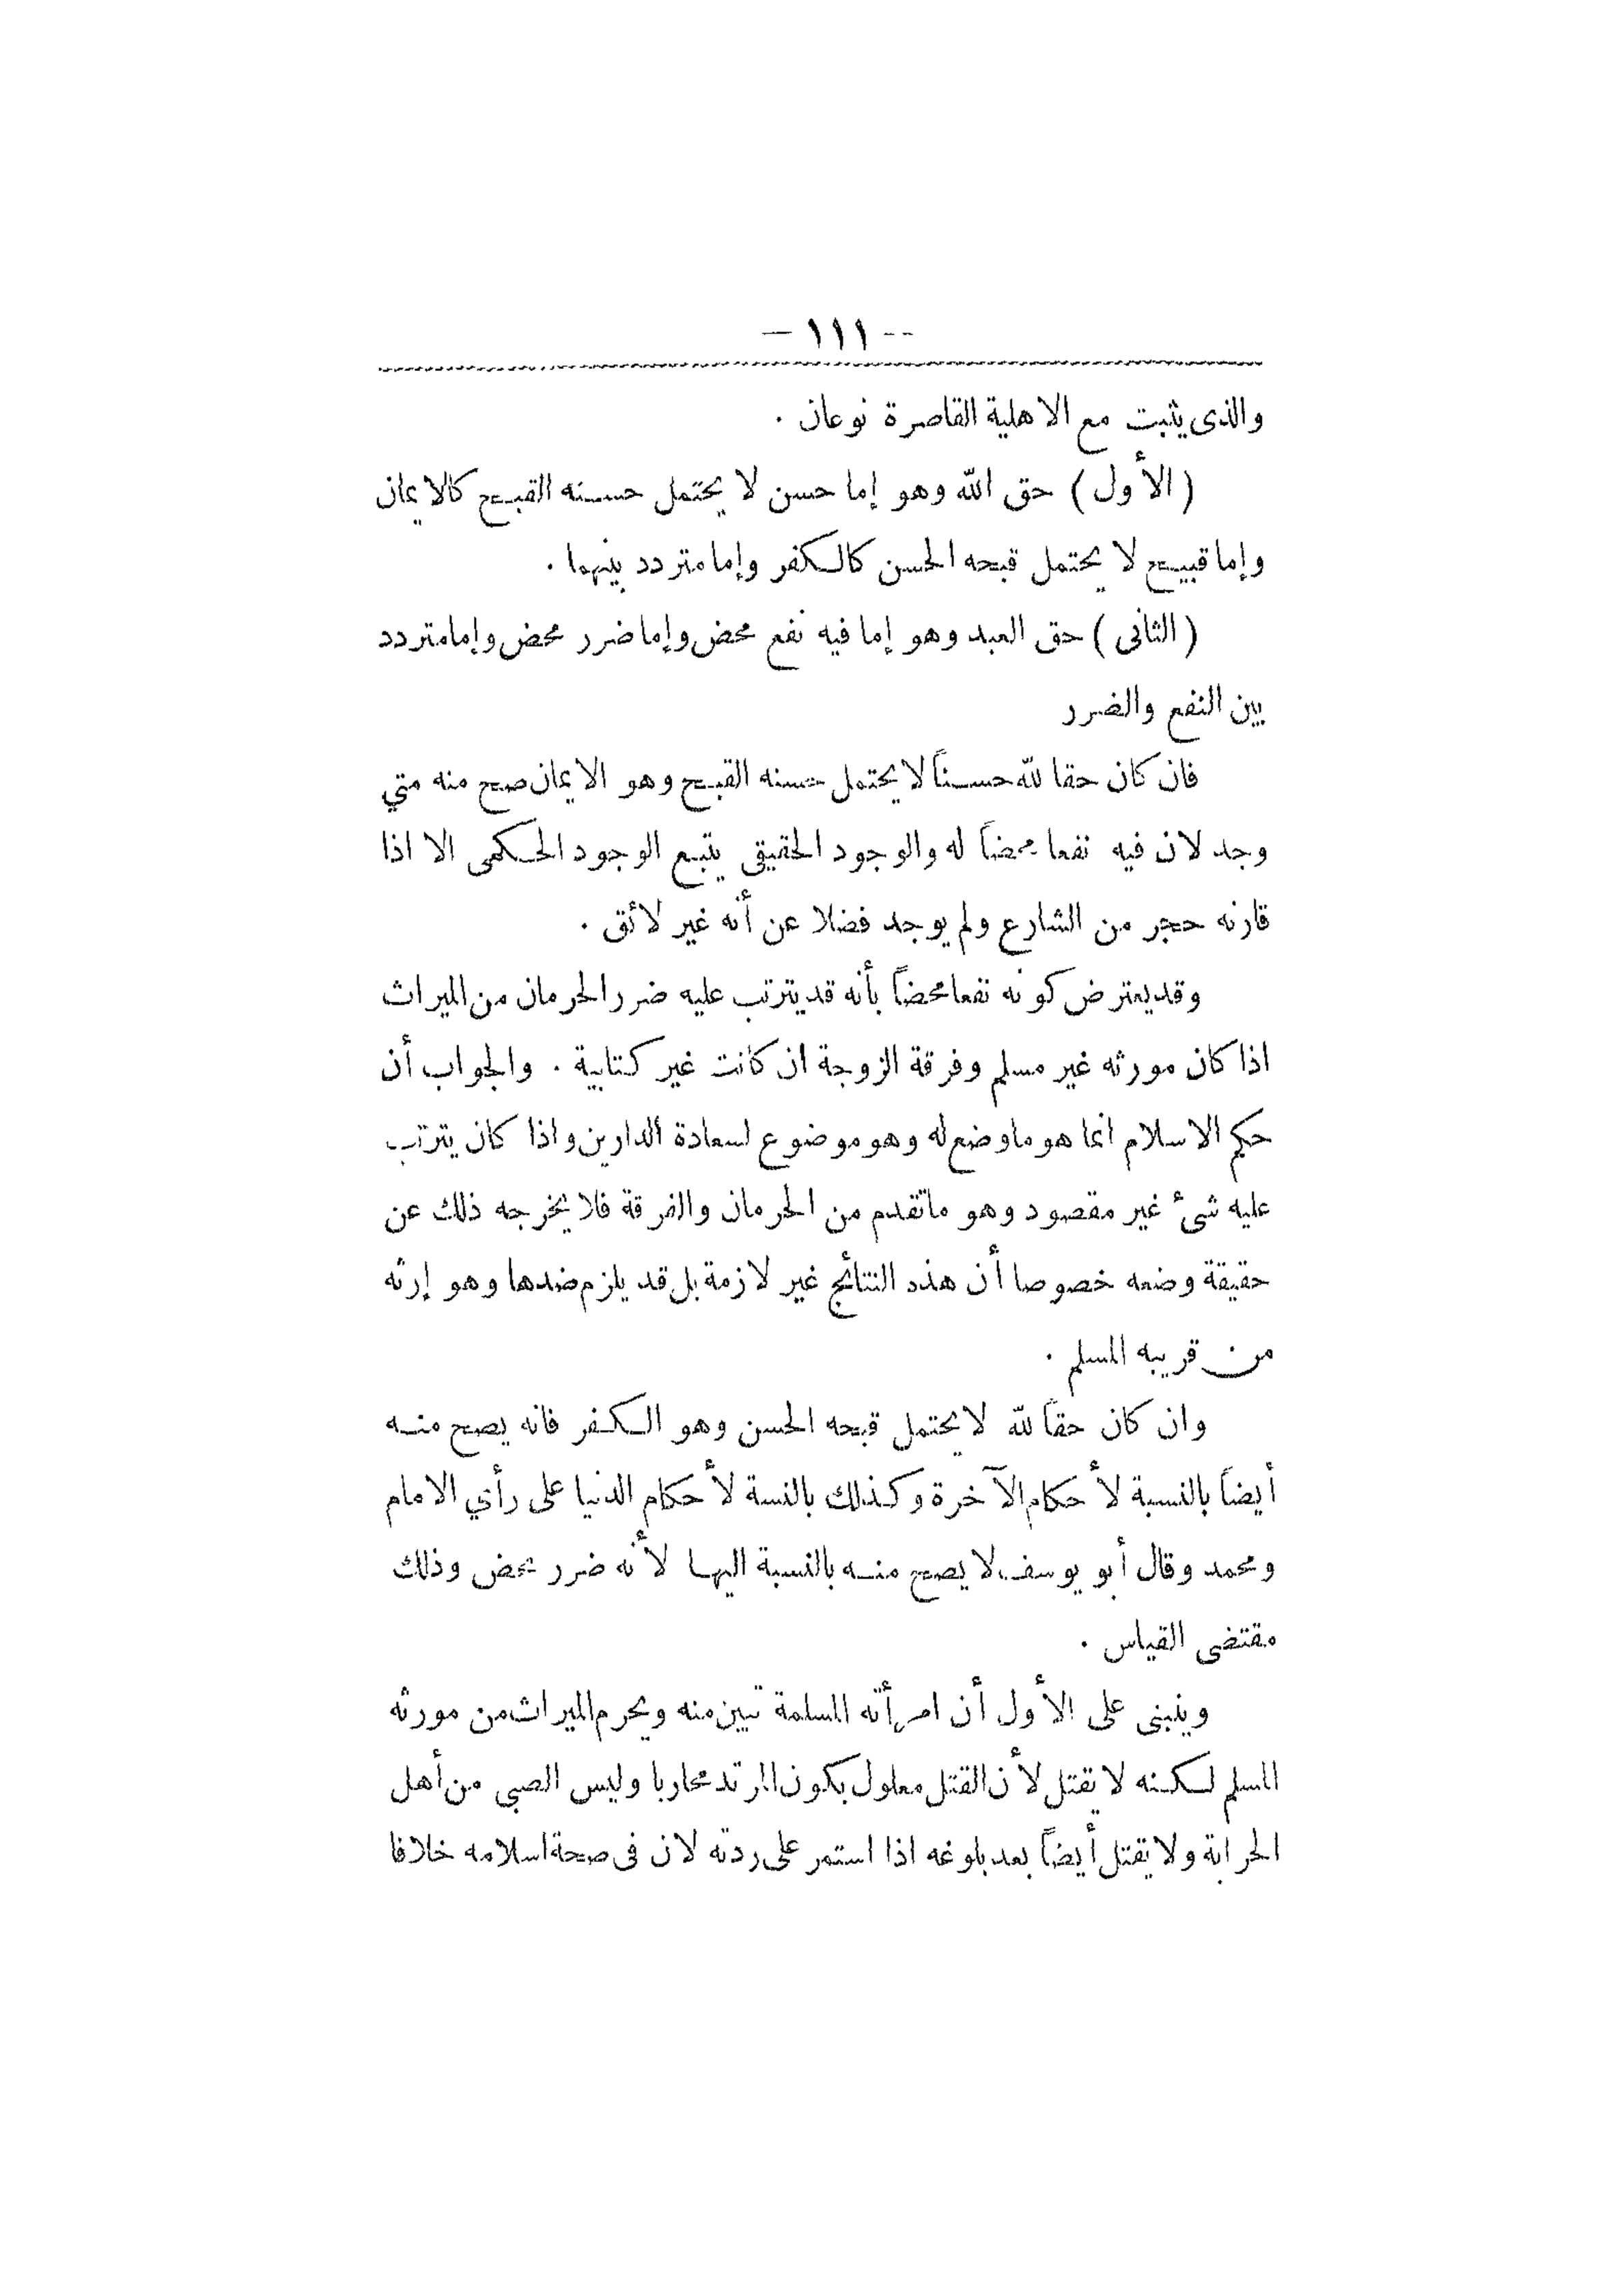 -- ١١١ —
والذى يثبت مع الاهلية القاصرة نوعان .
( الأول ) حق الله وهو إما حسن لا يحتمل حسنه القبح كالايمان
وإما قبيح لا يحتمل قبحه الحسن كالكفر وإما متردد بينهما .
( الثانى ) حق العبد وهو إما فيه نفع محض وإما ضرر محض وإما متردد
بين النفع والضرر
فان كان حقا لله حسناً لا يحتمل حسنه القبح وهو الايمان صح منه متي
وجد لان فيه نفعا محضاً له والوجود الحقيقى يتبع الوجود الحكمى الا اذا
قارنه حجر من الشارع ولم يوجد فضلا عن أنه غير لائق .
وقد يعترض كونه نفعا محضاً بأنه قد يترتب عليه ضرر الحرمان من الميراث
اذا كان مورثه غير مسلم وفرقة الزوجة ان كانت غير كتابية . والجواب أن
حكم الاسلام انما هو ما وضع له وهو موضوع لسعادة الدارين واذا كان يترتب
عليه شىء غير مقصود وهو ماتقدم من الحرمان والفرقة فلا يخرجه ذلك عن
حقيقة وضعه خصوصا أن هذه النتائج غير لازمة بل قد يلزم ضدها وهو إرثه
من قريبه المسلم .
وان كان حقاً لله لا يحتمل قبحه الحسن وهو الكفر فانه يصح منه
أيضاً بالنسبة لأحكام الآخرة وكذلك بالنسة لأحكام الدنيا على رأي الامام
ومحمد وقال أبو يوسف لا يصح منه بالنسبة اليها لأنه ضرر محض وذلك
مقتضى القياس .
وينبنى على الأول أن امرأته المسلمة تبين منه ويحرم الميراث من مورثه
المسلم لكنه لا يقتل لأن القتل معلول بكون المرتد محاربا وليس الصبى من أهل
الحرابة ولا يقتل أيضاً بعد بلوغه اذا استمر على ردته لان فى صحة اسلامه خلافا